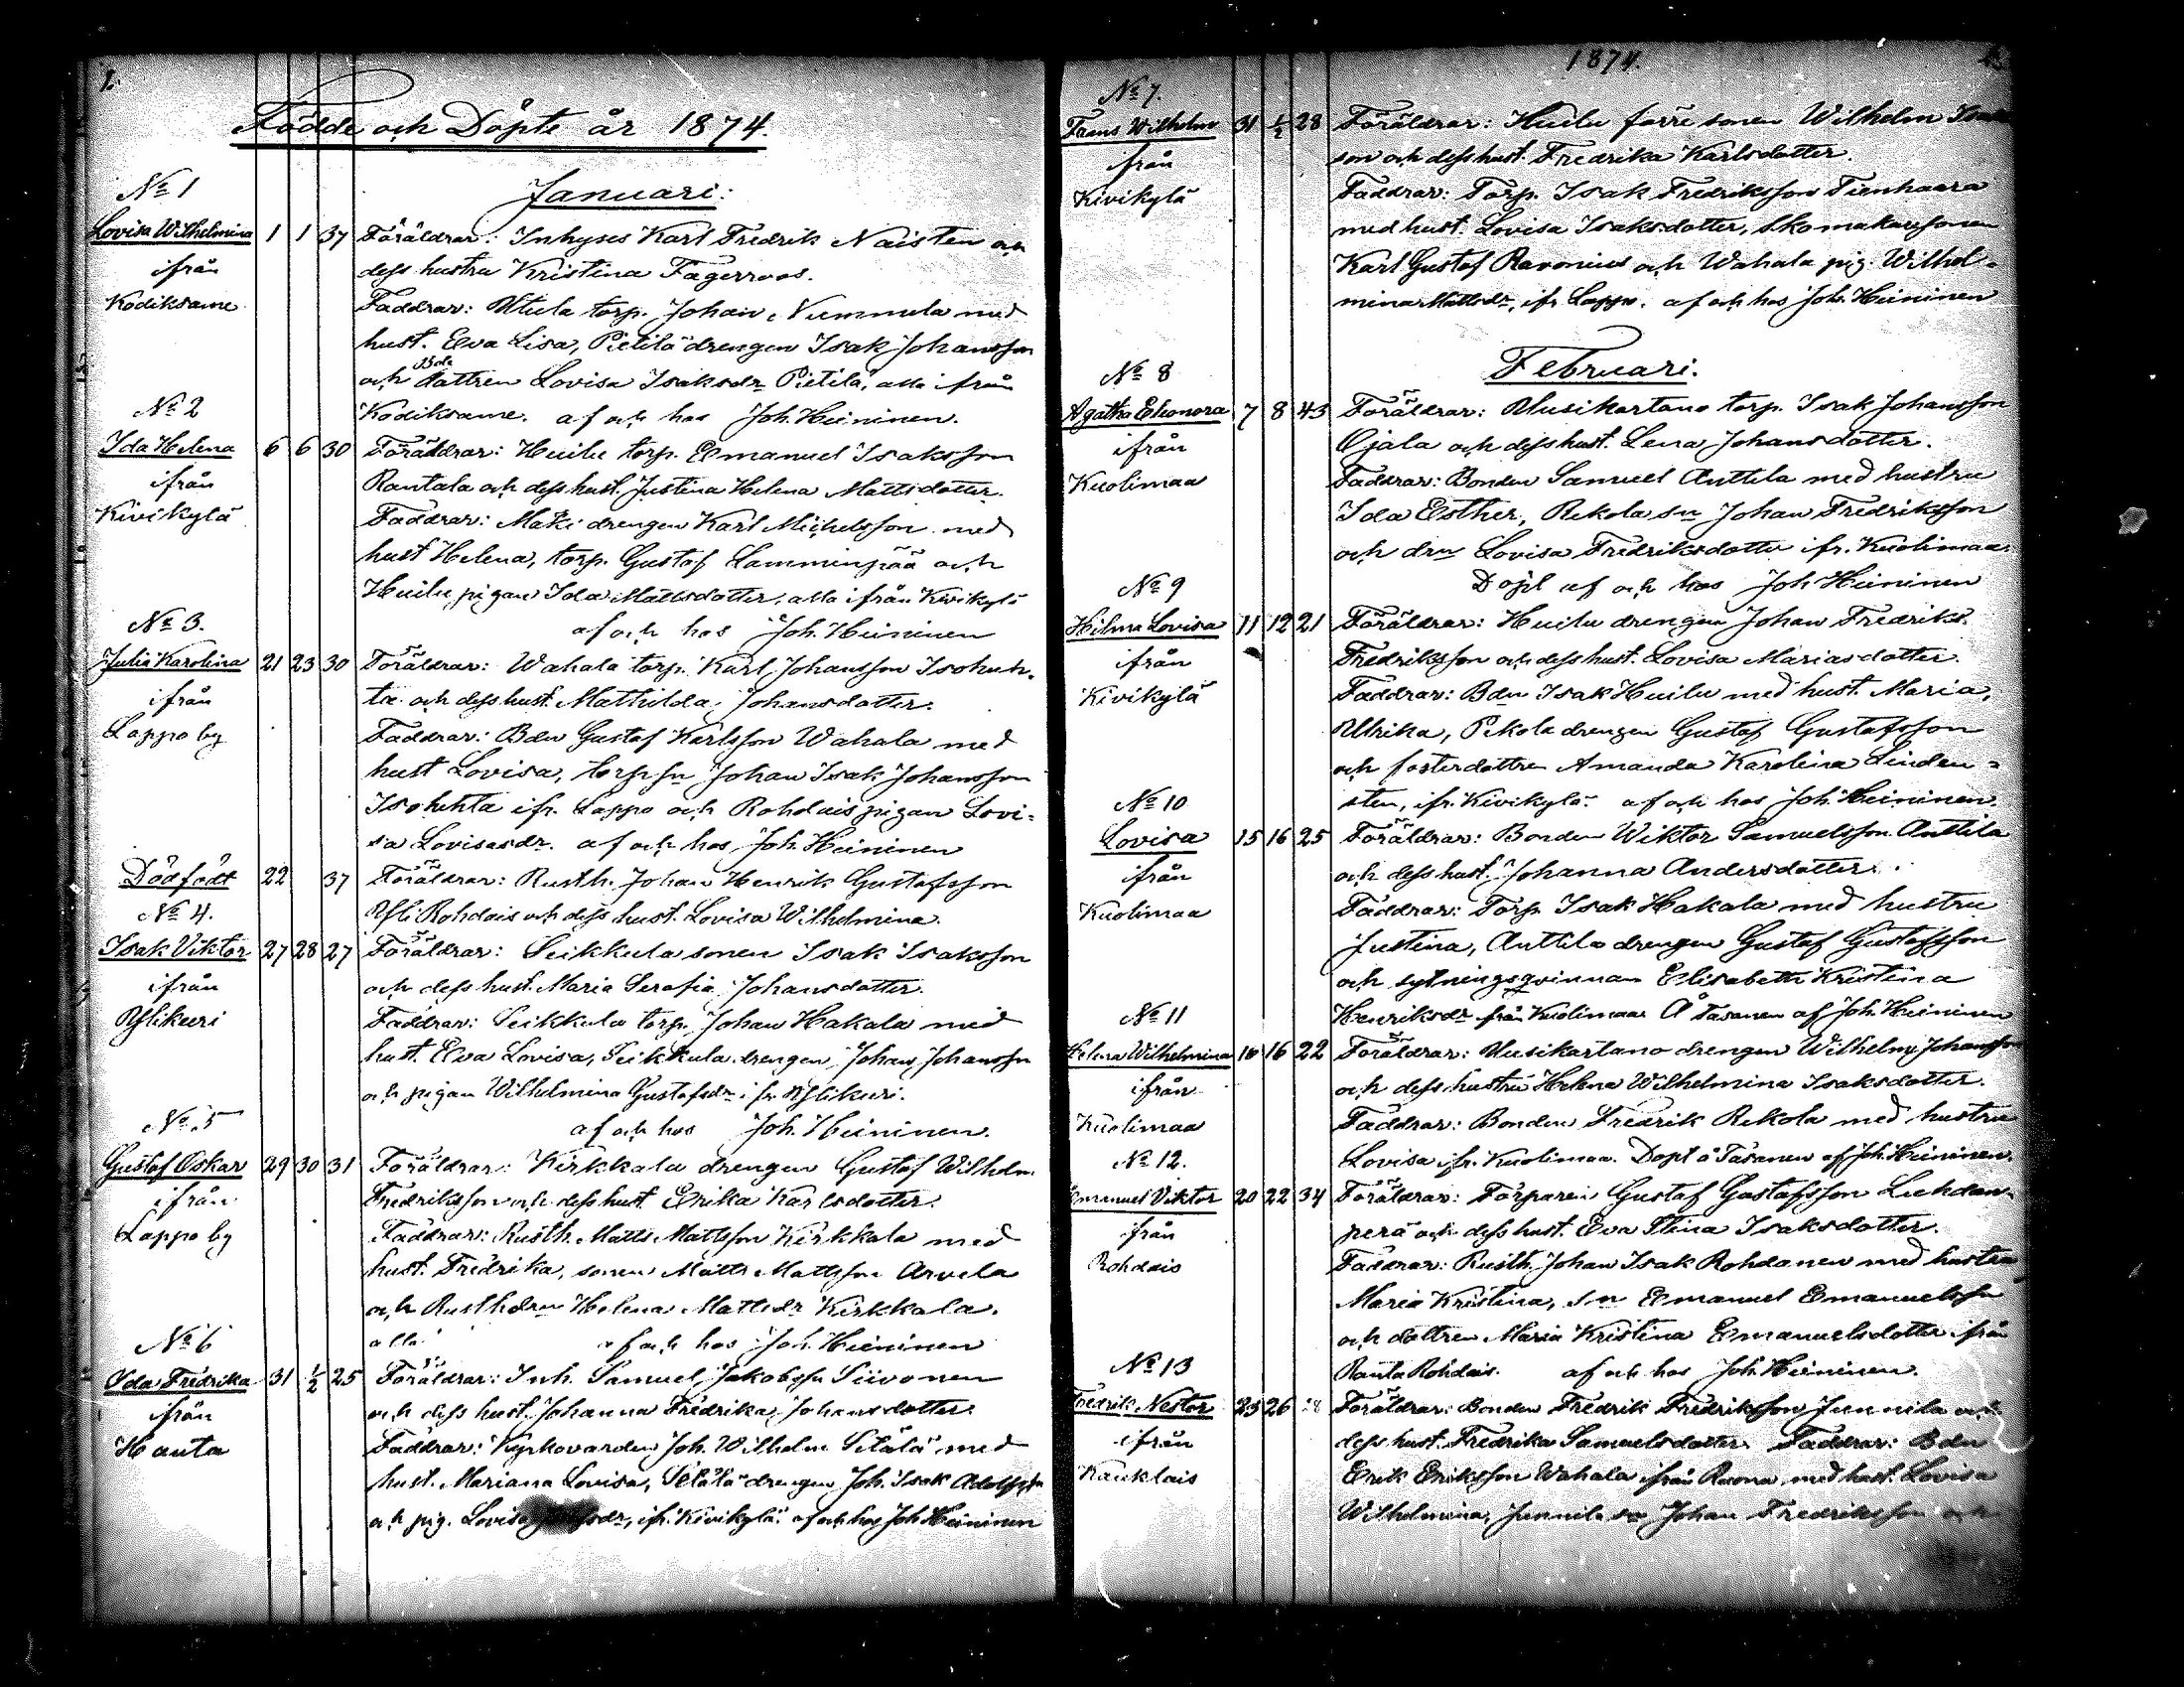 1.
Födde och Döpte år 1874.
Januari:
No 1
Lovisa Wilhelmina 1 1 37 Föräldrar: Inhyses Karl Fredrik Naisten och
ifrån dess hustru Kristina Fagerroos.
Kodiksame Faddrar: Utula torp. Johan Nummula med
hust. Eva Lisa, Pietilä drengen Isak Johansson
och Bde dottren Lovisa Isaksdr Pietilä, alla ifrån
Kodiksame. af och hos Joh. Heininen.
No 2
Ida Helena 6 6 30 Föräldrar: Huilu torp. Emanuel Isaksson
ifrån Rantala och dess hust. Justina Helena Mattsdotter.
Kivikylä Faddrar: Mäki drengen Karl Michelsson med
hust Helena, torp. Gustaf Lamminpää och
Huilu pigan Ida Mattsdotter, alla ifrån Kivikylä
af och hos Joh. Heininen
No 3.
Julia Karolina 21 23 30 Föräldrar: Wahala torp. Karl Johansson Isohuh-
ifrån ta och dess hust. Mathilda Johansdotter.
Lappo by Faddrar: Bdn Gustaf Karlsson Wahala med
hust Lovisa, torp. sn Johan Isak Johansson
Isohuhta ifr. Lappo och Rohdais pigan Lovi-
sa Lovisasdr. af och hos Joh. Heininen
Dödfödt 22 37 Föräldrar: Rusth. Johan Henrik Gustafsson
Yli Rohdais och dess hust. Lovisa Wilhelmina.
No 4.
Isak Viktor 27 28 27 Föräldrar: Seikkula sonen Isak Isaksson
ifrån och dess hust. Maria Serafia Johansdotter.
Ylikeri Faddrar: Seikkula torp. Johan Hakala med
hust. Eva Lovisa, Seikkula drengen Johan Johansson
och pigan Wilhelmina Gustafsdr ifr Ylikeri.
af och hos Joh. Heininen.
No 5
Gustaf Oskar 29 30 31 Föräldrar: Kirkkala drengen Gustaf Wilhelm
ifrån Fredriksson och dess hust Erika Karlsdotter.
Lappo by Faddrar: Rusth. Matts Mattsson Kirkkala med
hust. Fredrika, sonen Matts Mattsson Arvela
och Rusth drn Helena Mattsdr Kirkkala.
alla af och hos Joh. Heininen
No 6
Ida Fredrika 31 1/2 25 Föräldrar: Inh. Samuel Jakobsson Siivonen
ifrån och dess hust. Johanna Fredrika Johansdotter.
Hanta Faddrar: Kyrkovarden Joh. Wilhelm Setälä med
hust. Mariana Lovisa, Setälä drengen Joh. Isak Adolfsson
och pig. Lovisa ifr. Kivikylä. af och hos Joh Heininen
1874.
No 7.
Frans Wilhelm 31 1/2 28 Föräldrar: Huilu förre sonen Wilhelm Isak
ifrån son och dess hust. Fredrika Karlsdotter.
Kivikylä Faddrar: Torp. Isak Fredriksson Tienhaara
med hust. Lovisa Isaksdotter, Skomakaresonen
Karl Gustaf Ravonius och Wahala pig. Wilhel-
mina Mattsdr, ifr Lappo. af och hos Joh. Heininen
Februari.
No 8
Agatha Eleonora 7 8 43 Föräldrar: Uusikartano torp. Isak Johansson
ifrån Ojala och dess hust. Lena Johansdotter.
Kuolimaa Faddrar: Bonden Samuel Anttila med hustru
Ida Esther, Rekola sn Johan Fredriksson
och drn Lovisa Fredriksdotter ifr. Kuolimaa.
Döpt af och hos Joh Heininen
No 9
Hilma Lovisa 11 12 21 Föräldrar: Huilu drengen Johan Fredrik
ifrån Fredriksson och dess hust. Lovisa Mariasdotter.
Kivikylä Faddrar: Bdn Isak Huilu med hust. Maria,
Ulrika, Pekola drengen Gustaf Gustafsson
och fosterdottren Amanda Karolina Linden-
sten, ifr. Kivikylä. af och hos Joh. Heininen.
No 10
Lovisa 15 16 25 Föräldrar: Bonden Wiktor Samuelsson Anttila
ifrån och dess hust. Johanna Andersdotter.
Kuolimaa Faddrar: Torp. Isak Hakala med hustru
Justina, Anttila drengen Gustaf Gustafsson
och sytningsqvinnan Elisabeth Kristina
Henriksdr från Kuolimaa Å Tasanen af Joh. Heininen
No 11
Helena Wilhelmina 16 16 22 Föräldrar: Uusikartano drengen Wilhelm Johansson
ifrån och dess hustru Helena Wilhelmina Isaksdotter.
Kuolimaa Faddrar: Bonden Fredrik Rekola med hustru
Lovisa ifr. Kuolimaa. Döpt å Tasanen af Joh. Heininen.
No 12.
Emanuel Viktor 20 22 34 Föräldrar: Torparen Gustaf Gustafsson Liekdan-
ifrån perä och dess hust. Eva Stina Isaksdotter.
Rohdais Faddrar: Rusth. Johan Isak Rohdanen med hustru
Maria Kristina, sn Emanuel Emanuelsson
och dottren Maria Kristina Emanuelsdotter ifrån
Ranta Rohdais. af och hos Joh Heininen.
No 13
Fredrik Nestor 25 26 28 Föräldrar: Bonden Fredrik Fredriksson Junnila och
ifrån dess hust. Fredrika Samuelsdotter. Faddrar: Bdn
Kauklais Erik Eriksson Wahala ifrån Raona med hust. Lovisa
Wilhelmina, Junnila sn Johan Fredriksson och